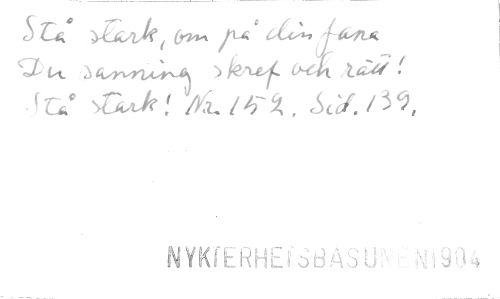 Stå stark, om på din fana
Du sanning skref och rätt!
Stå stark! Nr. 152. Sid. 139.
NYKTERHETSBASUNEN 1904